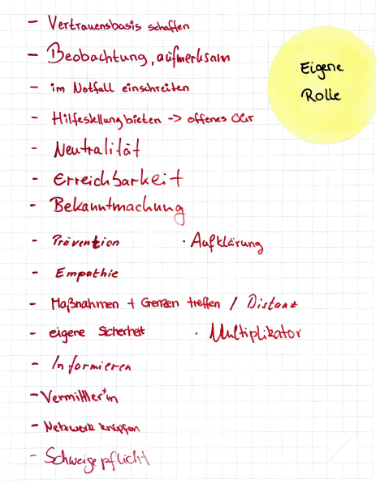 - Vertrauensbasis schaffen
- Beobachtung, aufmerksam
Eigene
Rolle
- im Notfall einschreiten
- Hilfestellung bieten -> offenes Ohr
- Neutralität
- Erreichbarkeit
- Bekanntmachung
- Prävention · Aufklärung
- Empathie
- Maßnahmen + Grenzen treffen / Distanz
- eigene Sicherheit · Multiplikator
- Informieren
- Vermittler*in
- Netzwerk knüpfen
- Schweigepflicht